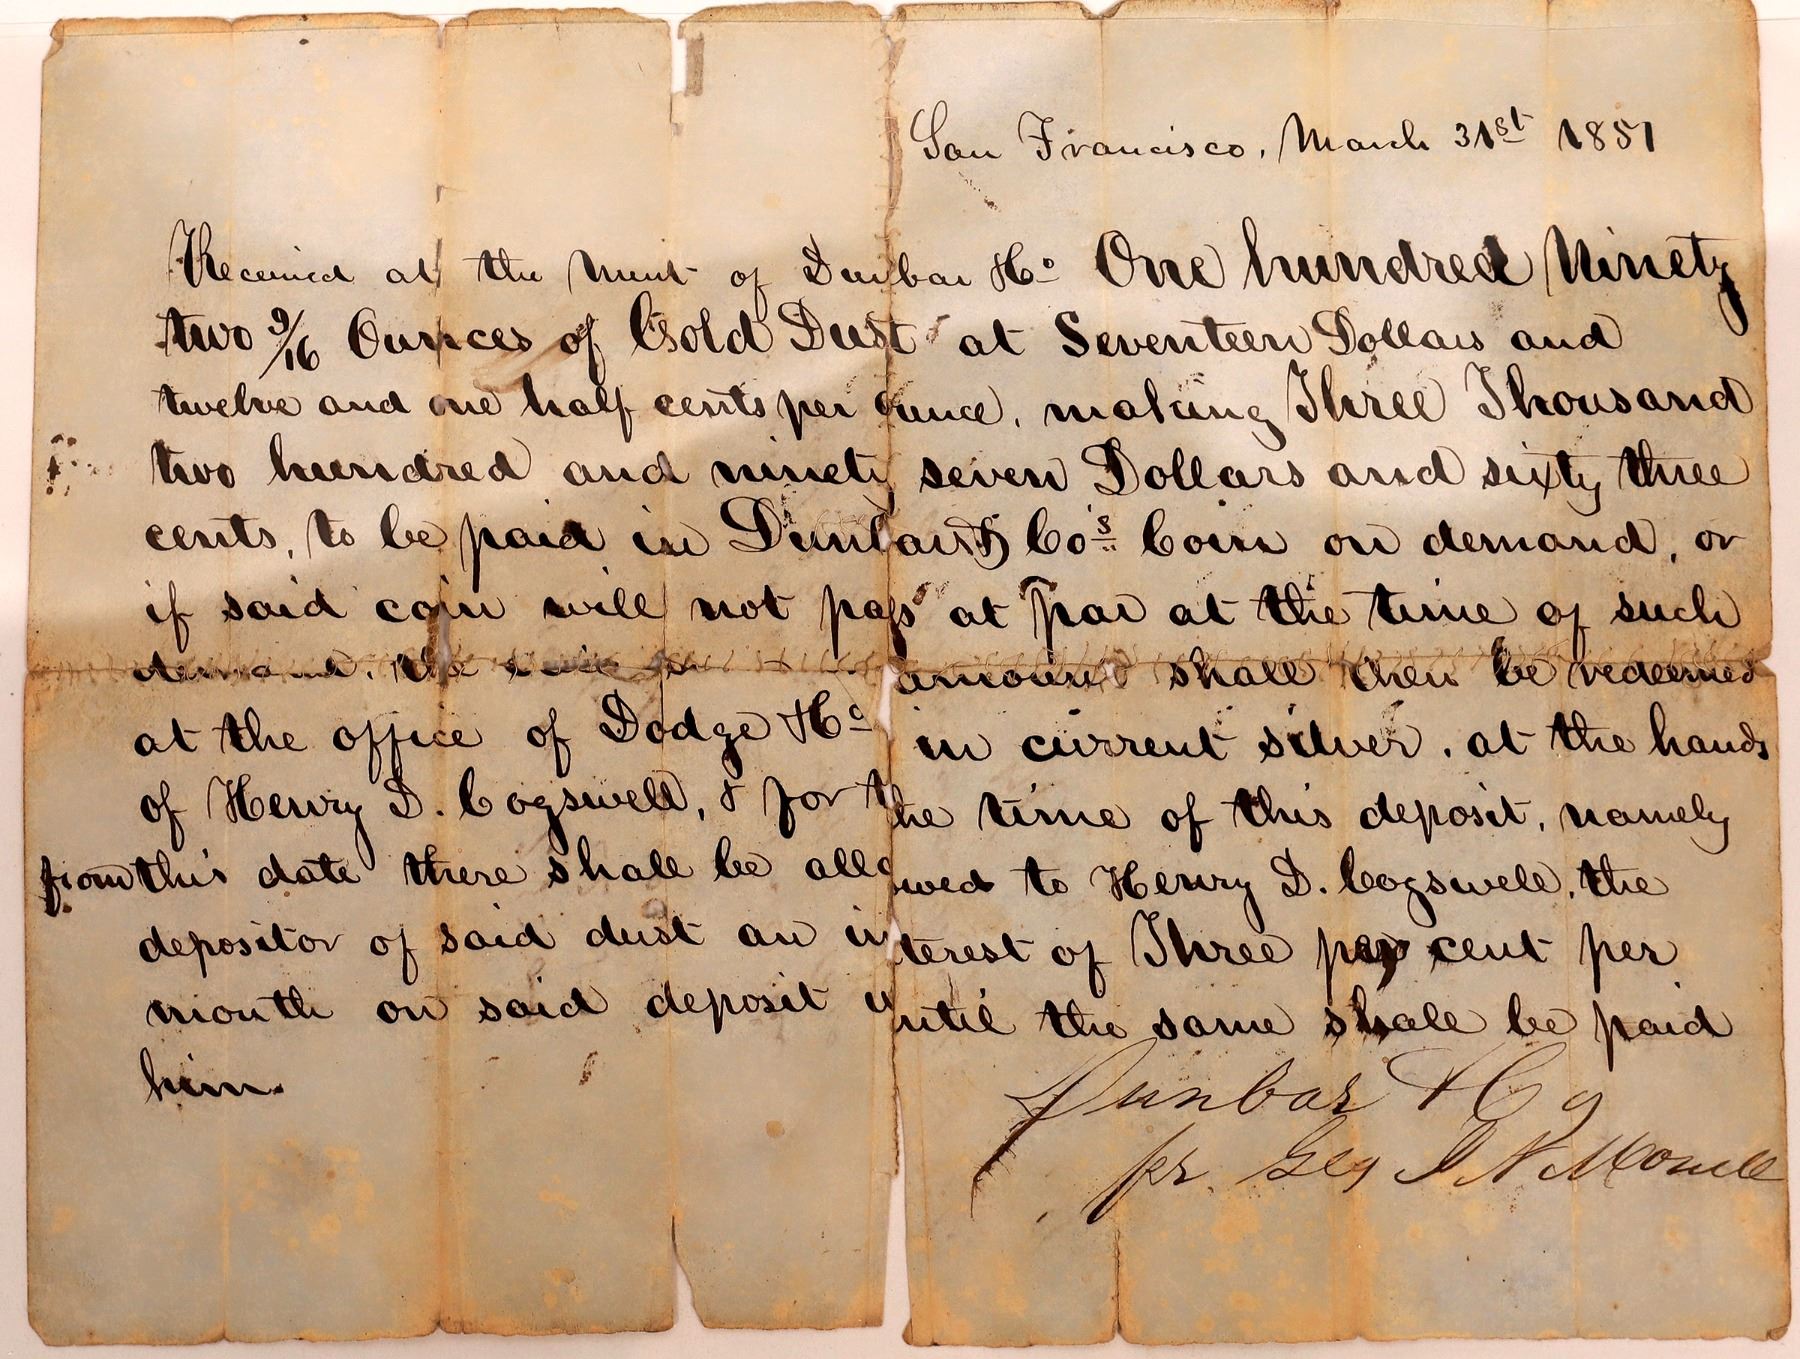 San Francisco, March 31st 1851
Received at the Mint of Dunbar & Co One hundred Ninety
two 9/16 Ounces of Gold Dust at Seventeen Dollars and
twelve and one half cents per ounce, making Three Thousand
two hundred and ninety seven Dollars and sixty three
cents, to be paid in Dunbar & Co's Coin on demand, or
if said coin will not pass at par at the time of such
demand, the amount shall then be redeemed
at the office of Dodge & Co in current silver, at the hands
of Henry D. Cogswell, & for the time of this deposit, namely
from this date there shall be allowed to Henry D. Cogswell, the
depositor of said dust an interest of Three per cent per
month on said deposit until the same shall be paid
him.
Dunbar & Co
pr. Geo